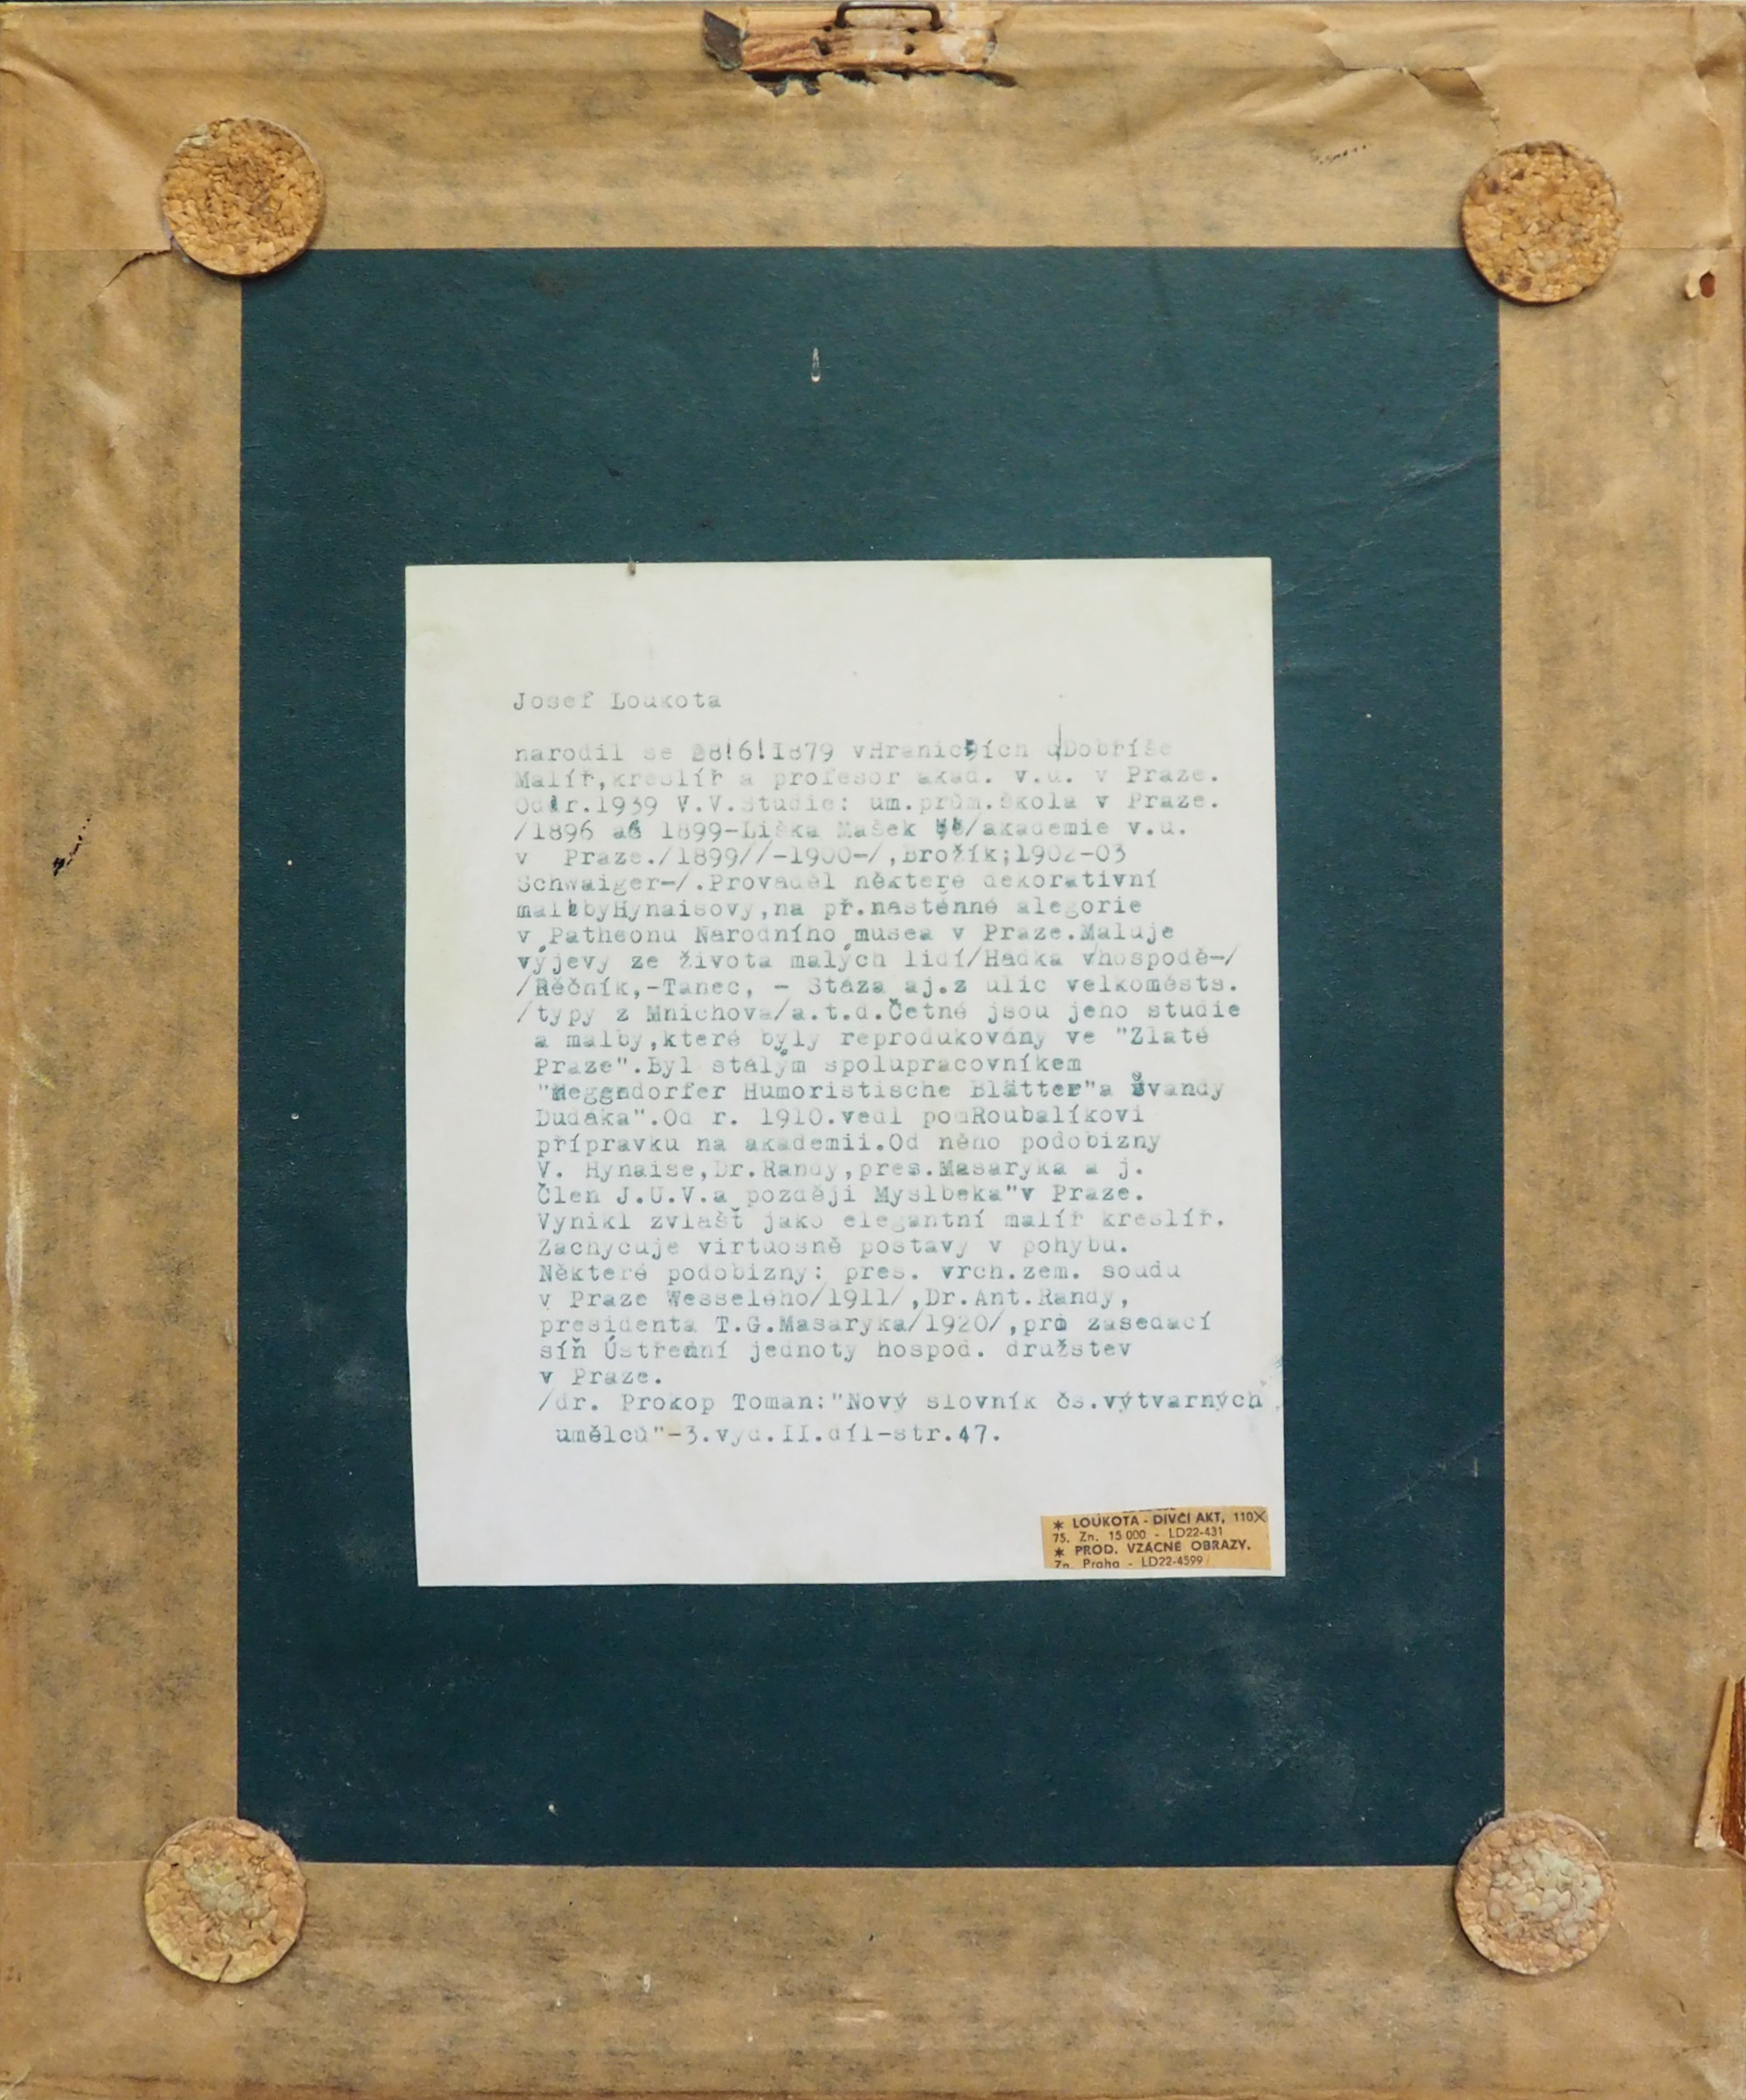 Josef Loukota
narodil se 28!6!1879 vHraničních Dobříše
Malíř,kreslíř a profesor akad. v.u. v Praze.
Od r.1939 V.V.Studie: um.prům.škola v Praze.
/1896 až 1899-Liška Mašek /akademie v.u.
v Praze./1899//-1900-/,Brožík;1902-03
Schwaiger-/.Prováděl některé dekorativní
malbyHynaisovy,na př.nástěnné alegorie
v Patheonu Národního musea v Praze.Maluje
výjevy ze života malých lidí/Hádka vhospodě-/
/Řěčník,-Tanec, - Stáza aj.z ulic velkoměsts.
/typy z Mnichova/a.t.d.Četné jsou jeho studie
a malby,které byly reprodukovány ve "Zlaté
Praze".Byl stálým spolupracovníkem
"Meggndorfer Humoristische Blätter"a Švandy
Dudáka".Od r. 1910.vedl podRoubalíkovi
přípravku na akademii.Od něho podobizny
V. Hynaise,Dr.Randy,pres.Masaryka a j.
Člen J.U.V.a později Myslbeka"v Praze.
Vynikl zvlášť jako elegantní malíř kreslíř.
Zachycuje virtuosně postavy v pohybu.
Některé podobizny: pres. vrch.zem. soudu
v Praze Wesselého/1911/,Dr.Ant.Randy,
presidenta T.G.Masaryka/1920/,pro zasedací
síň Ústřední jednoty hospod. družstev
v Praze.
/dr. Prokop Toman:"Nový slovník čs.výtvarných
umělců"-3.vyd.II.díl-str.47.
* LOUKOTA - DÍVČÍ AKT, 110X
75. Zn. 15 000 - LD22-431
* PROD. VZÁCNÉ OBRAZY.
Zn. Praha - LD22-4599